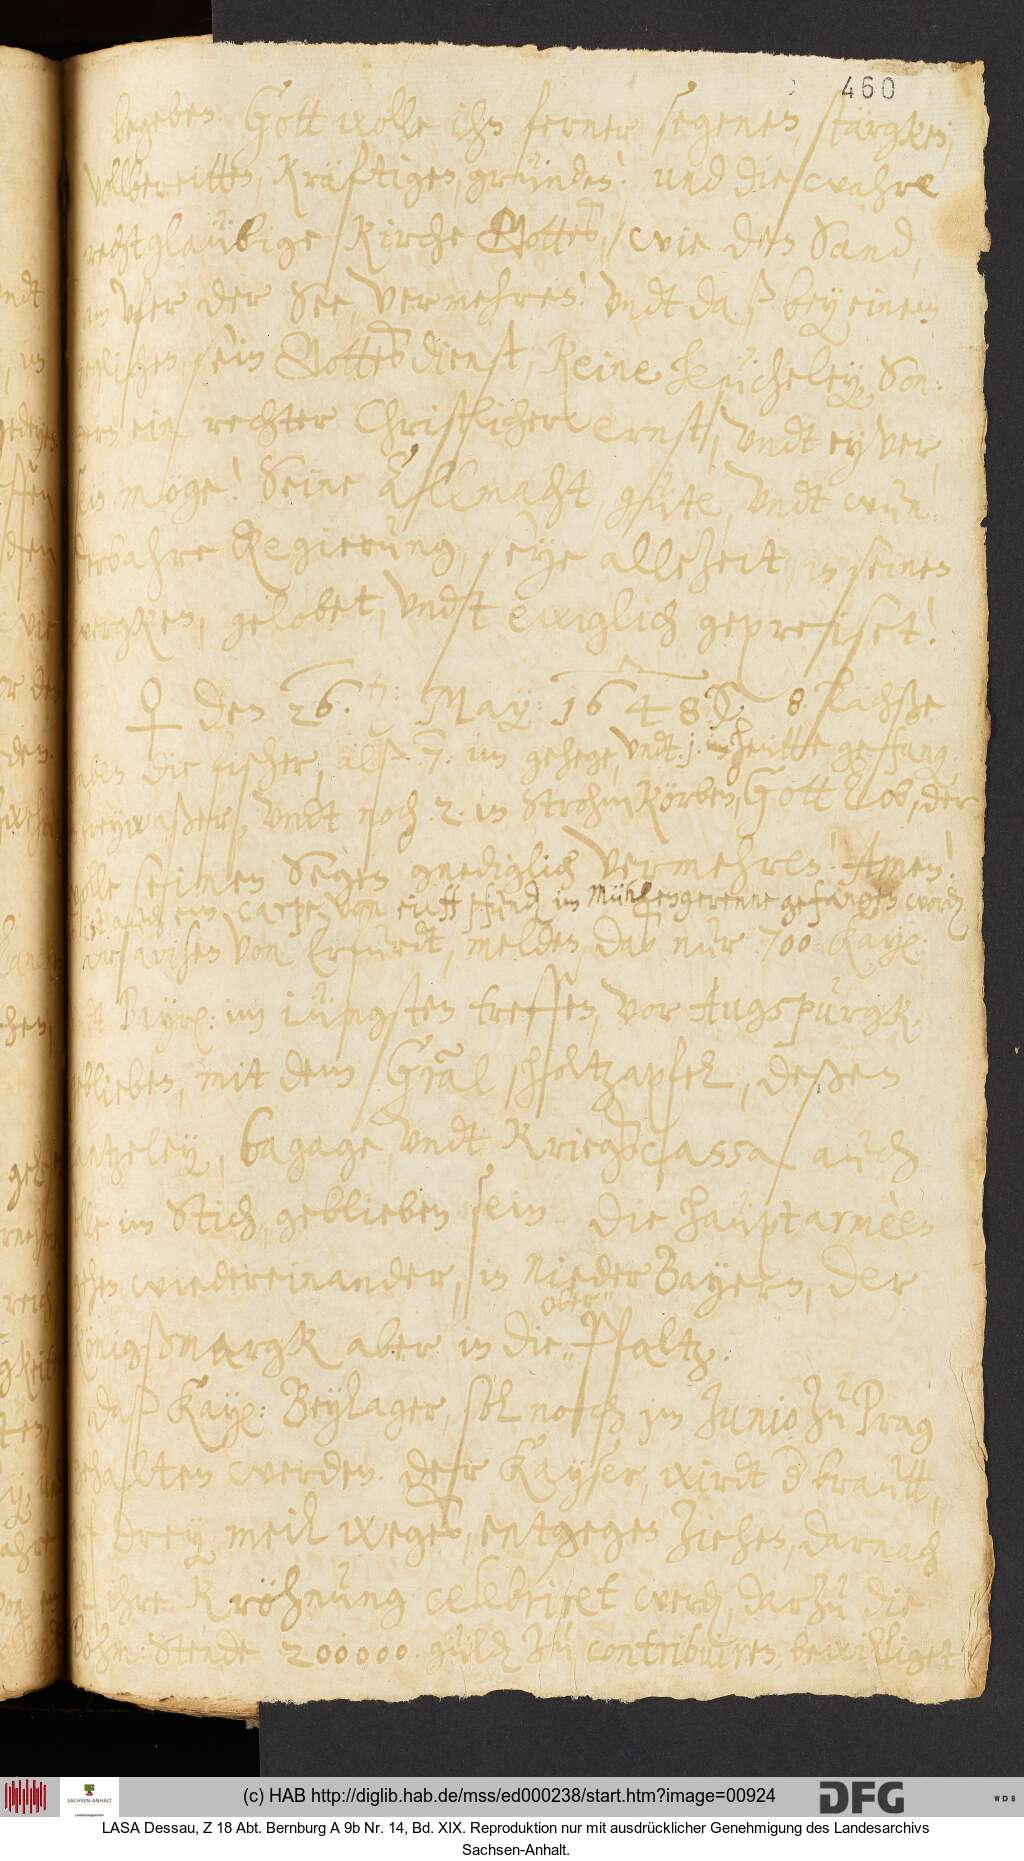 460
begeben. Gott wolle ihn ferner segenen, stärgken,
vollbereitten, kräftigen, gründen! und die wahre
rechtglaübige Kirche Gottes, wie den Sand,
am Ufer der See, vermehren! Undt daß bey einem
ieglichen, sein Gottesdienst, keine heücheley, Son¬
dern ein rechter Christlicher ernst, undt eyver,
sein möge! Seine Allmacht, güte, undt wun¬
derbahre Regierung, seye allezeit, in seinen
wergken, gelobet, undt ewiglich gepreiset!
♀ den 26. May: 1648. 8 Lachße
haben die fischer, alß: 7. im gehege, undt 1. im heütte gefang
freywaßer, undt noch 2. in Strohmkörben, Gott lob, der
wolle seinen Segen gnediglich vermehren! Amen!
Ist auch ein carpe von eilff pfund im Mühlengerenne gefangen word
Avisen von Erfurdt, melden, das nur 700 Kay:
undt Bayr: im iüngsten treffen, vor Augspurgk,
geblieben, mit dem Gral Holtzapfel, deßen
Cantzeley, bagage, undt Kriegscassa auch
alle im Stich, geblieben sein. Die hauptarmeen
gehen wiedereinander, in NiederBayern, der
Königßmargk aber in die ober Pfaltz.
Daß Kay: Beylager, sol noch im Junio zu Prag
gehalten werden. der Kayser, wirdt d braütt,
auf drey meil weges, entgegen ziehen, darnach
sol ihre Kröhnung celebriret werd, darzu die
Böhm: Stende 200000 güld zu contribuiren, bewilliget
(c) HAB http://diglib.hab.de/mss/ed000238/start.htm?image=00924
SACHSEN-ANHALT
DFG
WDB
LASA Dessau, Z 18 Abt. Bernburg A 9b Nr. 14, Bd. XIX. Reproduktion nur mit ausdrücklicher Genehmigung des Landesarchivs
Sachsen-Anhalt.